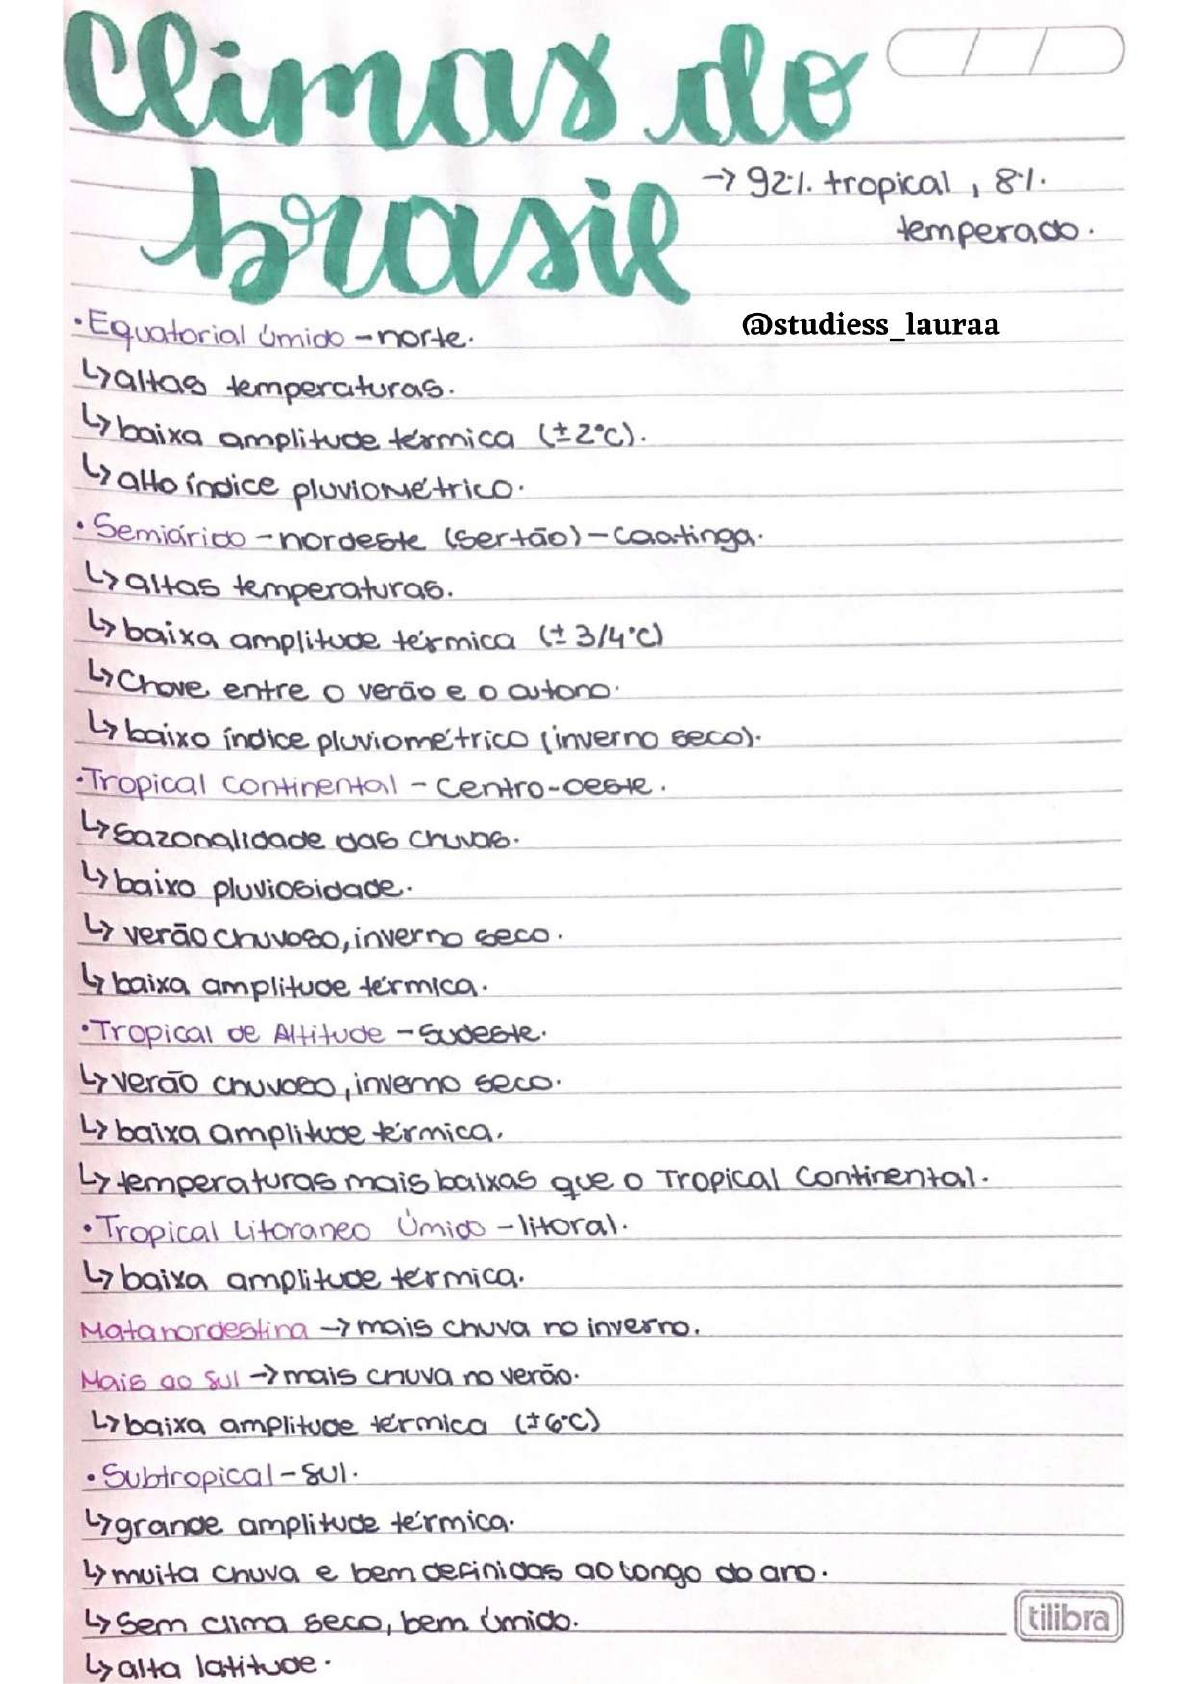 Climas do
brasil
→ 92%. tropical, 8%.
temperado.
@studiess_lauraa
• Equatorial Úmido - norte.
↳ altas temperaturas.
↳ baixa amplitude térmica (±2°C).
↳ alto índice pluviométrico.
• Semiárido - nordeste (sertão) - Caatinga.
↳ altas temperaturas.
↳ baixa amplitude térmica (± 3/4°C)
↳ Chove entre o verão e o outono.
↳ baixo índice pluviométrico (inverno seco).
• Tropical Continental - Centro-oeste.
↳ Sazonalidade das chuvas.
↳ baixa pluviosidade.
↳ verão chuvoso, inverno seco.
↳ baixa amplitude térmica.
• Tropical de Altitude - Sudeste.
↳ verão chuvoso, inverno seco.
↳ baixa amplitude térmica.
↳ temperaturas mais baixas que o Tropical Continental.
• Tropical Litoraneo Úmido - litoral.
↳ baixa amplitude térmica.
Mata nordestina → mais chuva no inverno.
Mais ao Sul → mais chuva no verão.
↳ baixa amplitude térmica (±6°C)
• Subtropical - Sul.
↳ grande amplitude térmica.
↳ muita chuva e bem definidas ao longo do ano.
↳ Sem clima seco, bem úmido.
tilibra
↳ alta latitude.